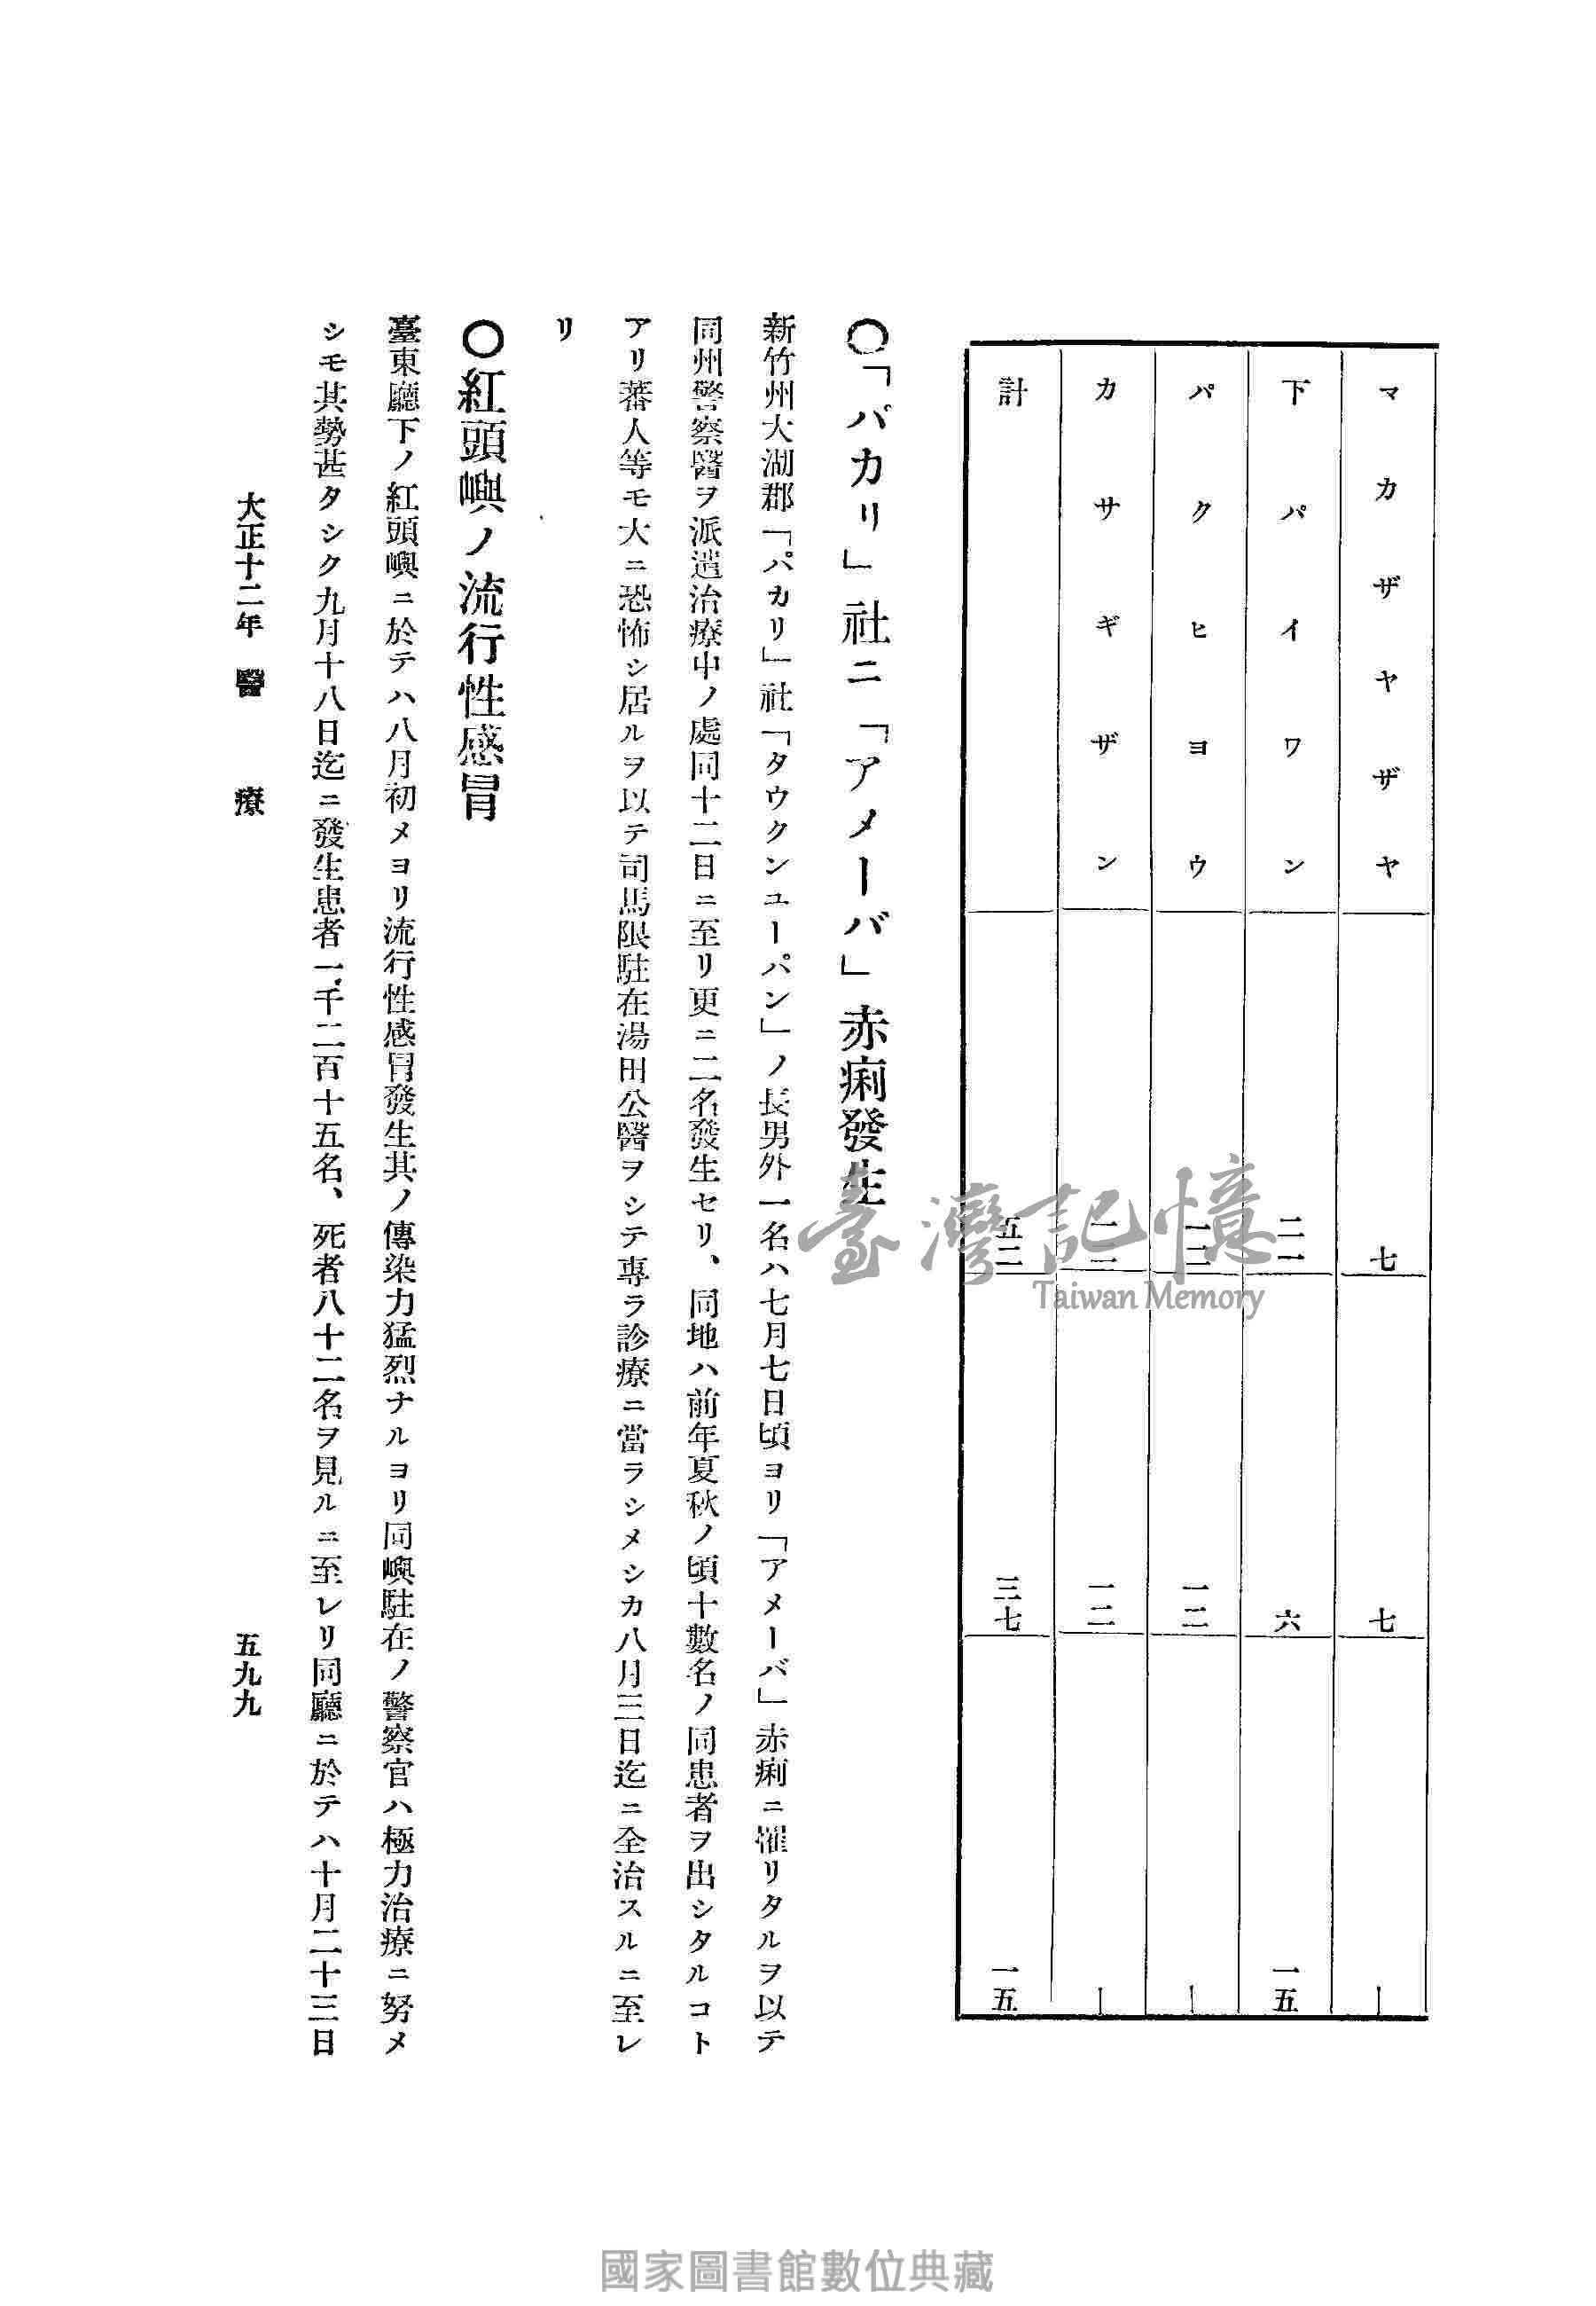 マカザヤヤザヤ 七 七 ｜
下パイワン 二一 六 一五
パクヒヨウ 一二 一二 ｜
カサギザン 一二 一二 ｜
計 五二 三七 一五
〇「パカリ」社ニ「アメーバ」赤痢發生
新竹州大湖郡「パカリ」社「タウクンユーパン」ノ長男外一名ハ七月七日頃ヨリ「アメーバ」赤痢ニ罹リタルヲ以テ
同州警察醫ヲ派遣治療中ノ處同十二日ニ至リ更ニ二名發生セリ、同地ハ前年夏秋ノ頃十數名ノ同患者ヲ出シタルコト
アリ蕃人等モ大ニ恐怖シ居ルヲ以テ司馬限駐在湯田公醫ヲシテ專ラ診療ニ當ラシメシカ八月三日迄ニ全治スルニ至レ
リ
〇紅頭嶼ノ流行性感冒
臺東廳下ノ紅頭嶼ニ於テハ八月初メヨリ流行性感冒發生其ノ傳染力猛烈ナルヨリ同嶼駐在ノ警察官ハ極力治療ニ努メ
シモ其勢甚タシク九月十八日迄ニ發生患者一、千二百十五名、死者八十二名ヲ見ルニ至レリ同廳ニ於テハ十月二十三日
大正十二年 醫療 五九九
臺灣記憶
Taiwan Memory
國家圖書館數位典藏